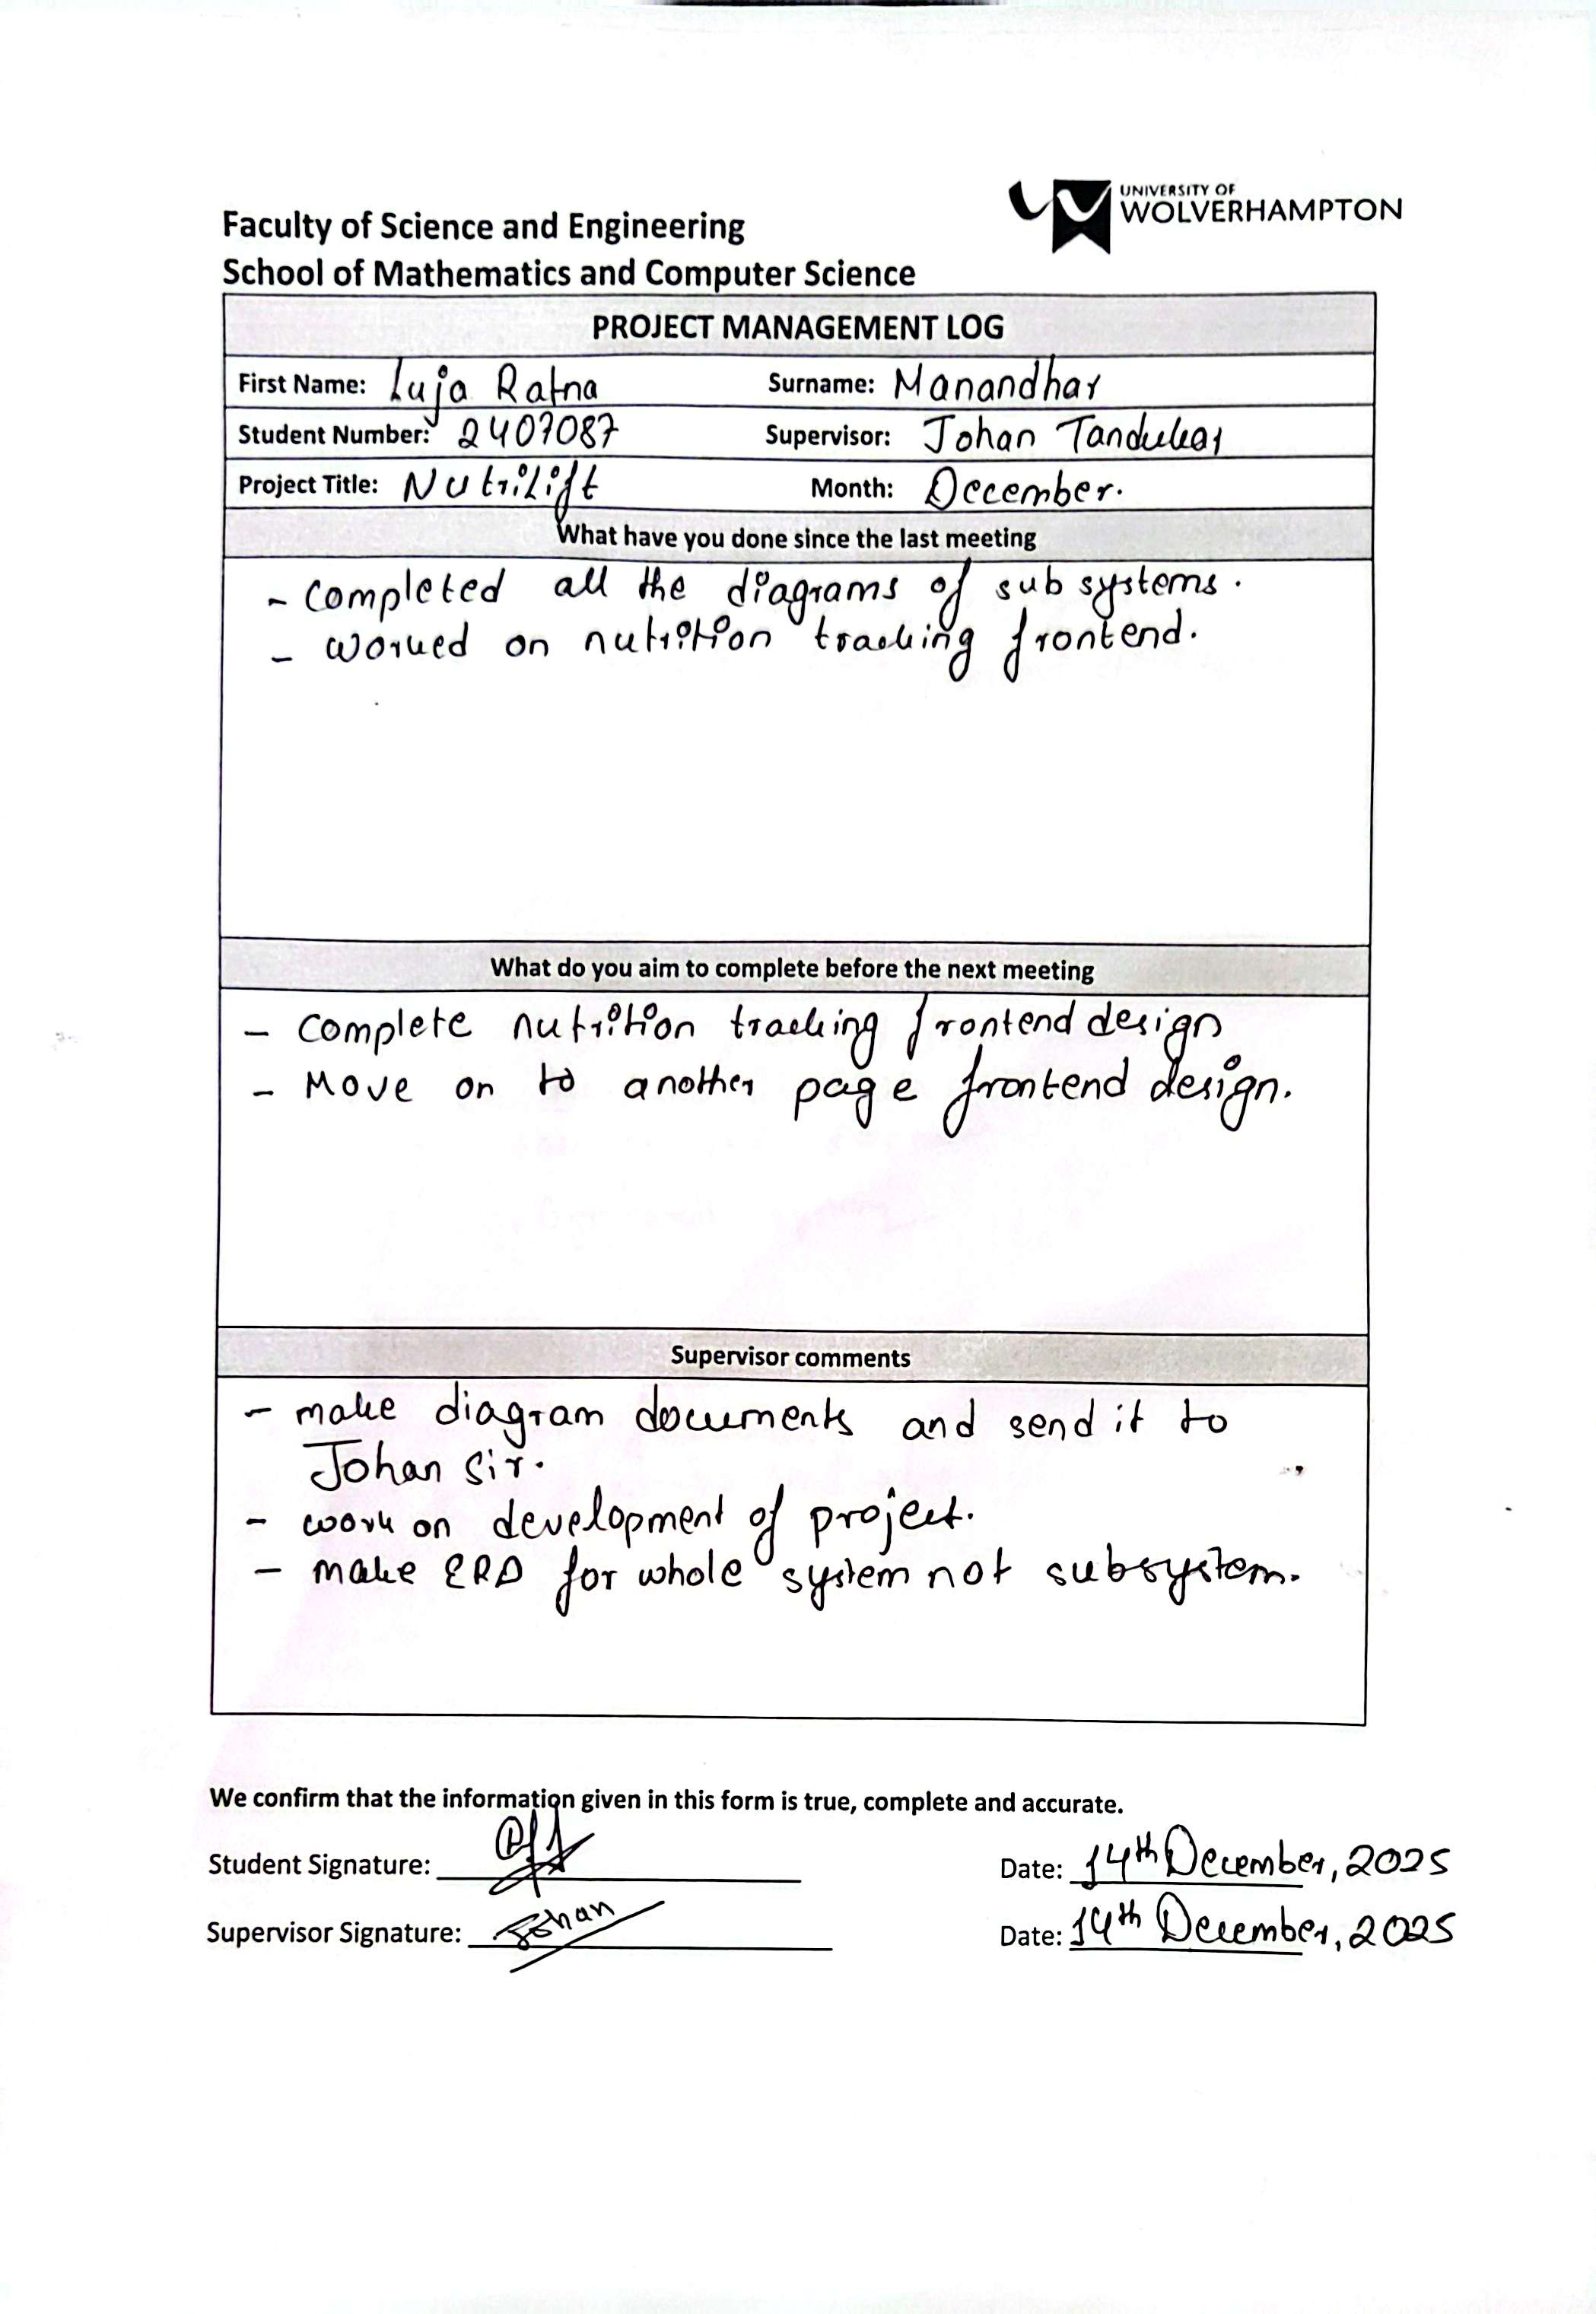 UNIVERSITY OF
WOLVERHAMPTON
Faculty of Science and Engineering
School of Mathematics and Computer Science
PROJECT MANAGEMENT LOG
First Name: Luja Ratna Surname: Manandhar
Student Number: 2407087 Supervisor: Johan Tandukar
Project Title: NutriLift Month: December.
What have you done since the last meeting
- Completed all the diagrams of sub systems.
- worked on nutrition tracking frontend.
What do you aim to complete before the next meeting
- Complete nutrition tracking frontend design
- Move on to another page frontend design.
Supervisor comments
- make diagram documents and send it to
Johan Sir.
- work on development of project.
- make ERD for whole system not subsystem.
We confirm that the information given in this form is true, complete and accurate.
Student Signature: Date: 14th December, 2025
Supervisor Signature: Johan Date: 14th December, 2025